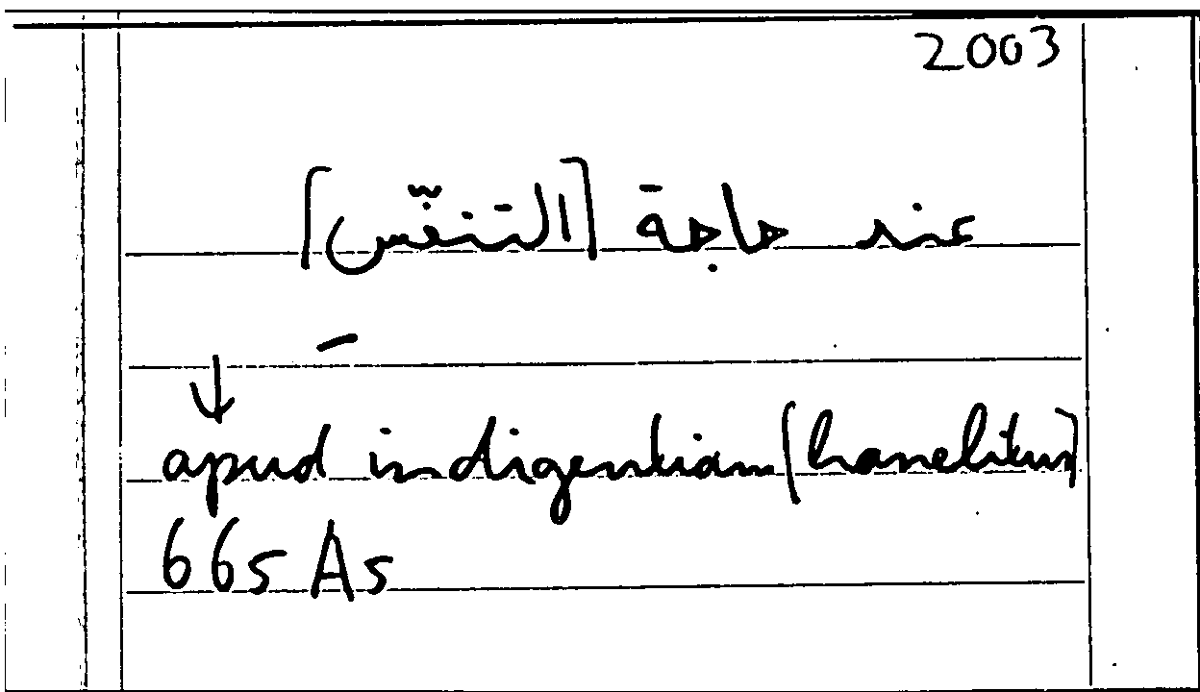 2003
عند حاجة [التنفّس]
↓ –
apud indigentiam [hanelitus]
665 A5